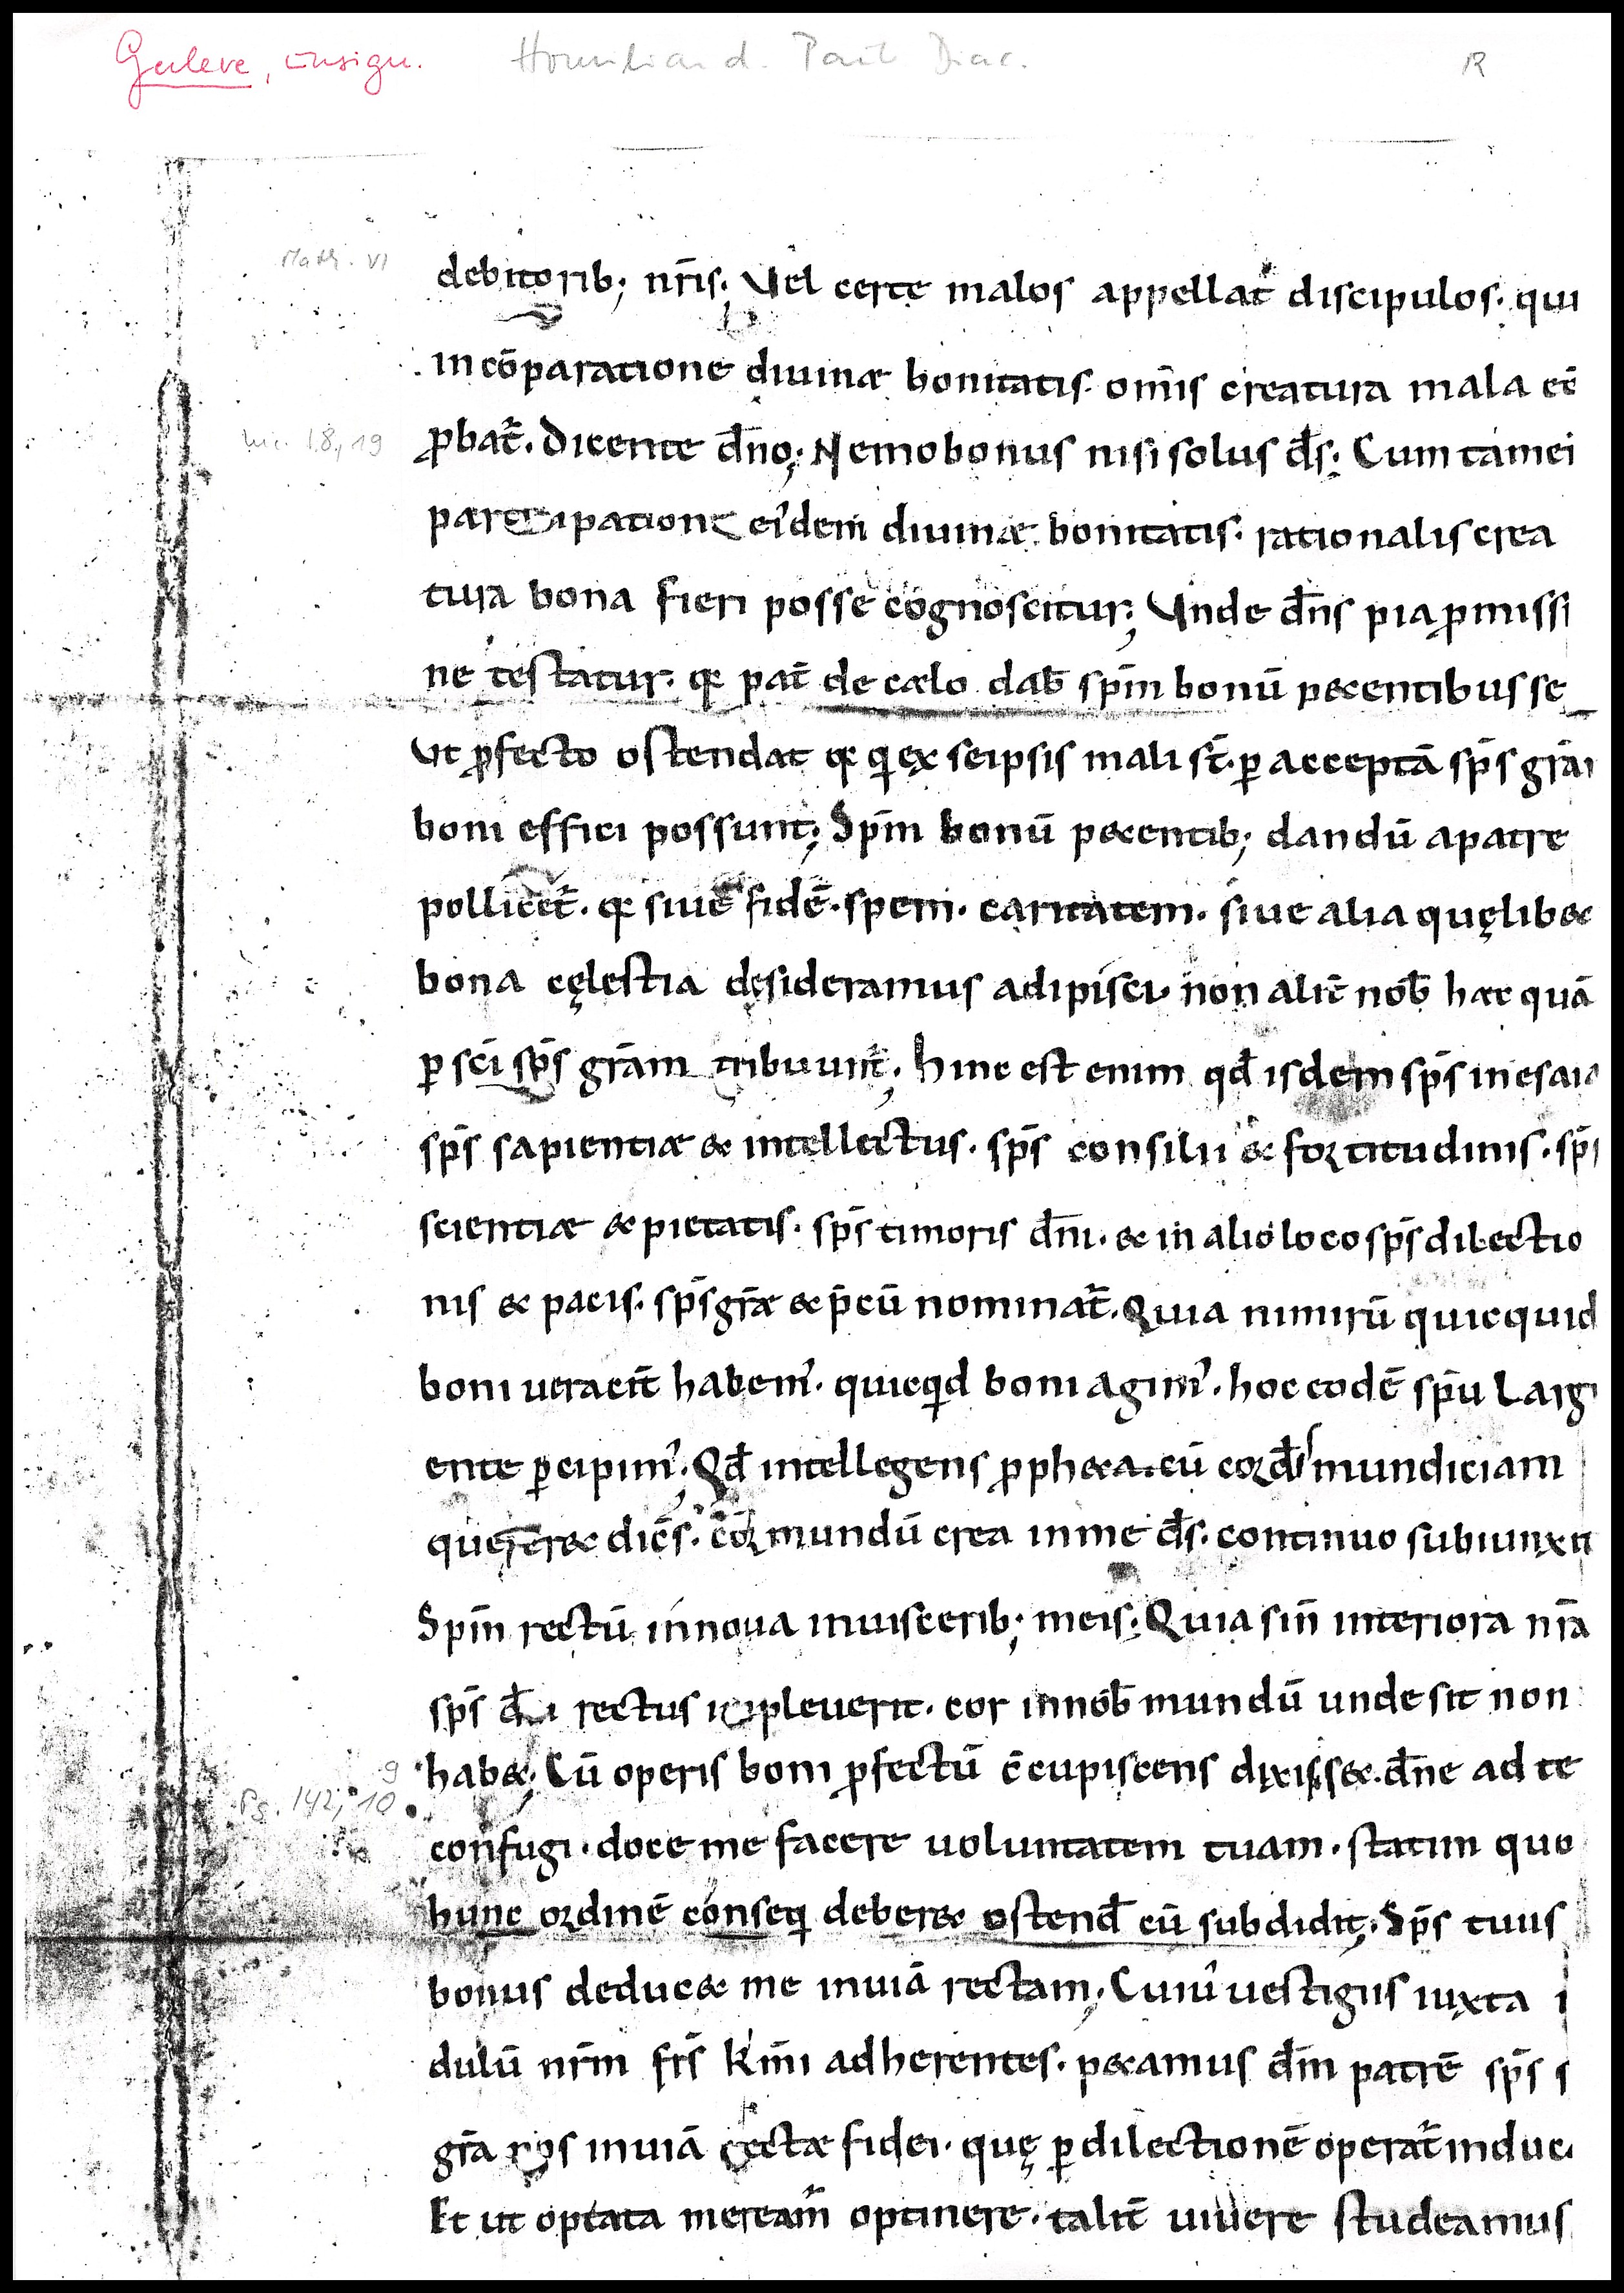 Geleve, unsign. Homiliar d. Paul Diac. R
Math. VI
debitorib; nr̄is. Vel certe malos appellat̄ discipulos. qui
in cōparatione diuinæ bonitatis. om̄is creatura mala eē
ꝓbat̄. Dicente dn̄o; Nemo bonus nisi solus d̄s; Cum tamen
Luc. 18, 19
participatione eiꝰdem diuinæ bonitatis. rationalis crea
tura bona fieri posse cognoscitur; Vnde dn̄s pia ꝓmissi
ne testatur. qꝫ pat̄ de cælo dab̄ sp̄m bonū p&entibus se
Vt ꝓfecto ostendat qꝫ qi ex seipsis mali st̄. ꝑ acceptā sp̄s grā
boni effici possunt; Sp̄m bonū p&entib; dandū a patre
pollicet̄. qꝫ siue fidē. spem. caritatem. siue alia quęlib&
bona cęlestia desideramus adipisci. non alit̄ nob̄ hæc quā
ꝑ sc̄i sp̄s grām tribuunt̄; Hinc est enim qd̄ isdem sp̄s in esaia
sp̄s sapientiæ & intellectus. sp̄s consilii & fortitudinis. sp̄s
scientiæ & pietatis. sp̄s timoris dn̄i. & in alio loco sp̄s dilectio
nis & pacis. sp̄s gr̄æ & p̄cū nominat̄. Quia nimirū quicquid
boni ueracit̄ habemꝰ. quicqid boni agimꝰ. hoc eodē sp̄u Larg
ente ꝑcipimꝰ; Qd̄ intellegens ꝓph&a. cū cord̄ mundiciam
querer& dicēs. cor mundū crea in me d̄s. continuo subiunxit
Sp̄m rectū innoua in uiscerib; meis; Quia sin̄ interiora nr̄a
sp̄s d̄i rectus impleuerit. cor in nob̄ mundū unde sit non
hab&; Cū operis boni ꝓfectū c̄cupiscens dixiss&. dn̄e ad te
Ps. 142, 9 10
confugi. doce me facere uoluntatem tuam. statim quo
hunc ordinē conseqi deber& ostend̄ cū subdidit; Sp̄s tuus
bonus deduc& me in uiā rectam; Cuiuꝰ uestigiis iuxta
dulū nr̄m fr̄s kmi adherentes. p&amus dn̄m patrē sp̄s s
gr̄a nos in uiā rectæ fidei. quę ꝑ dilectionē operat̄ induc
Et ut optata mereamr̄ optinere. talit̄ uiuere studeamus